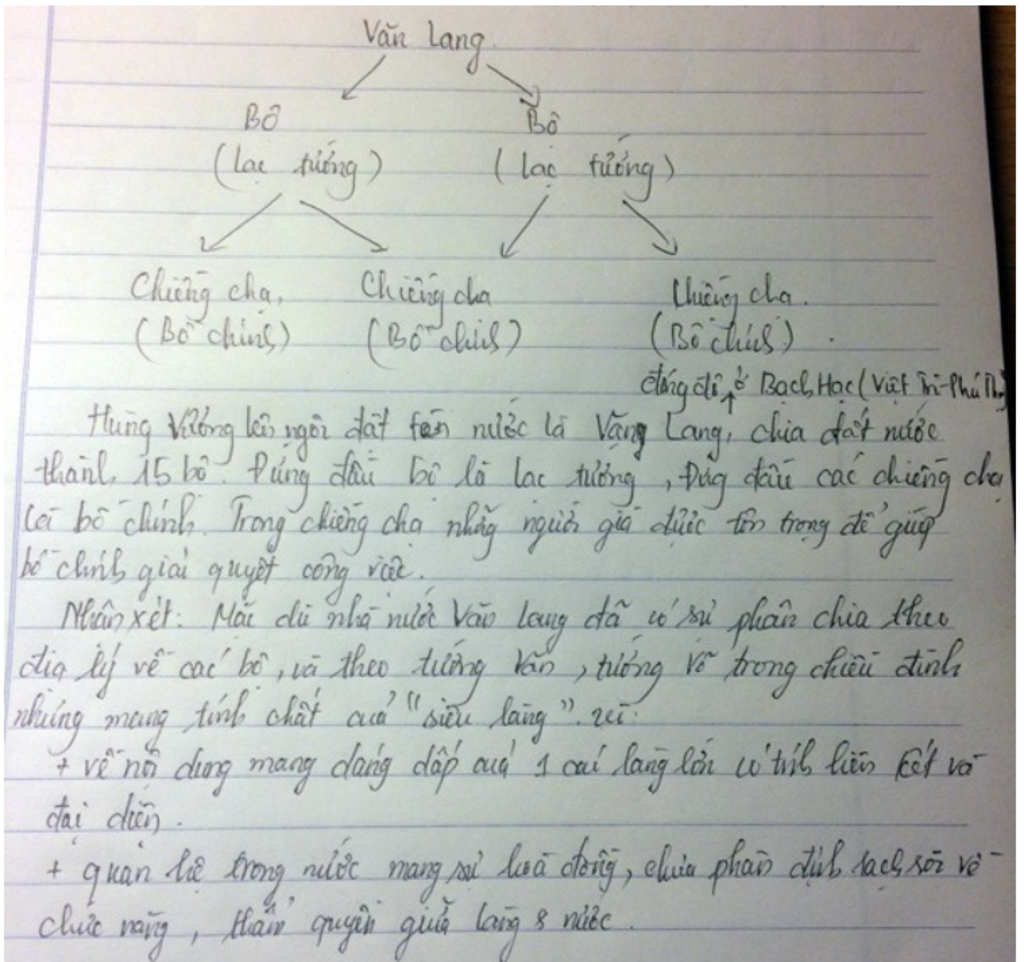 Văn Lang.
Bộ Bộ
(Lạc tướng) (Lạc tướng)
Chiềng chạ, Chiềng chạ Chiềng chạ.
(Bồ chính) (Bồ chính) (Bồ chính).
đóng đô ở Bạch Hạc (Việt Trì-Phú Thọ)
Hùng Vương lên ngôi đặt tên nước là Văng Lang, chia đất nước
thành 15 bộ. Đứng đầu bộ là lạc tướng, Đứng đầu các chiềng chạ
là bồ chính. Trong chiềng chạ những người già được tôn trọng để giúp
bồ chính giải quyết công việc.
Nhận xét: Mặc dù nhà nước Văn Lang đã có sự phân chia theo
địa lý về các bộ, và theo tướng văn, tướng võ trong triều đình
nhưng mang tính chất của "siêu làng". vì:
+ về nội dung mang dáng dấp của 1 cái làng lớn có tính liên kết và
đại diện.
+ quan hệ trong nước mang sự hoà đồng, chưa phân định rạch ròi về
chức năng, thẩm quyền giữa làng & nước.